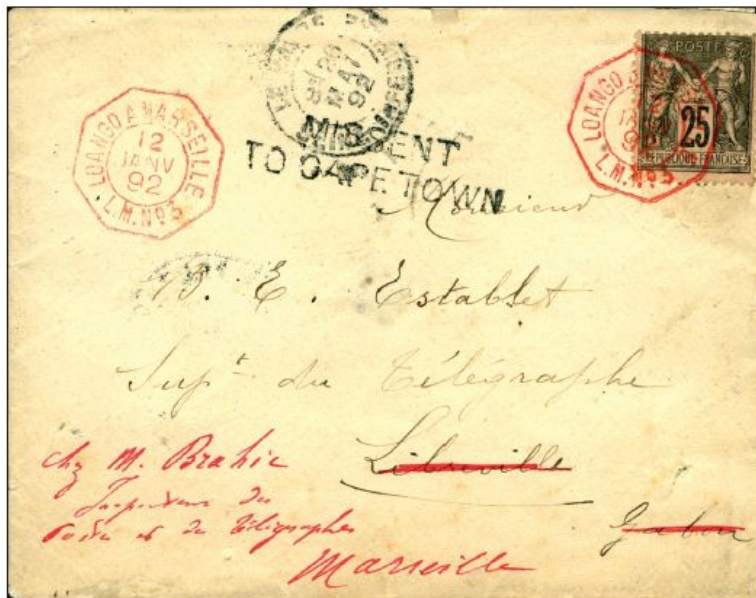 LOANGO A MARSEILLE
12
JANV
92
L.M. Nº3
20
MAI
92
MISSENT
TO CAPETOWN
LOANGO A
JANV
L.M. Nº3
POSTE
25
REPUBLIQUE FRANCAISE
Monsieur
E. Establet
Supt du Télégraphe
Libreville
Gabon
chz M. Brahic
Inspecteur des
Postes et des Télégraphes
Marseille